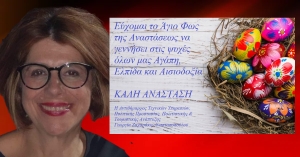 Εύχομαι το Άγιο Φως
της Αναστάσεως να
γεννήσει στις ψυχές
όλων μας Αγάπη,
Ελπίδα και Αισιοδοξία
ΚΑΛΗ ΑΝΑΣΤΑΣΗ
Η αντιδήμαρχος Τεχνικών Υπηρεσιών,
Πολιτικής Προστασίας,